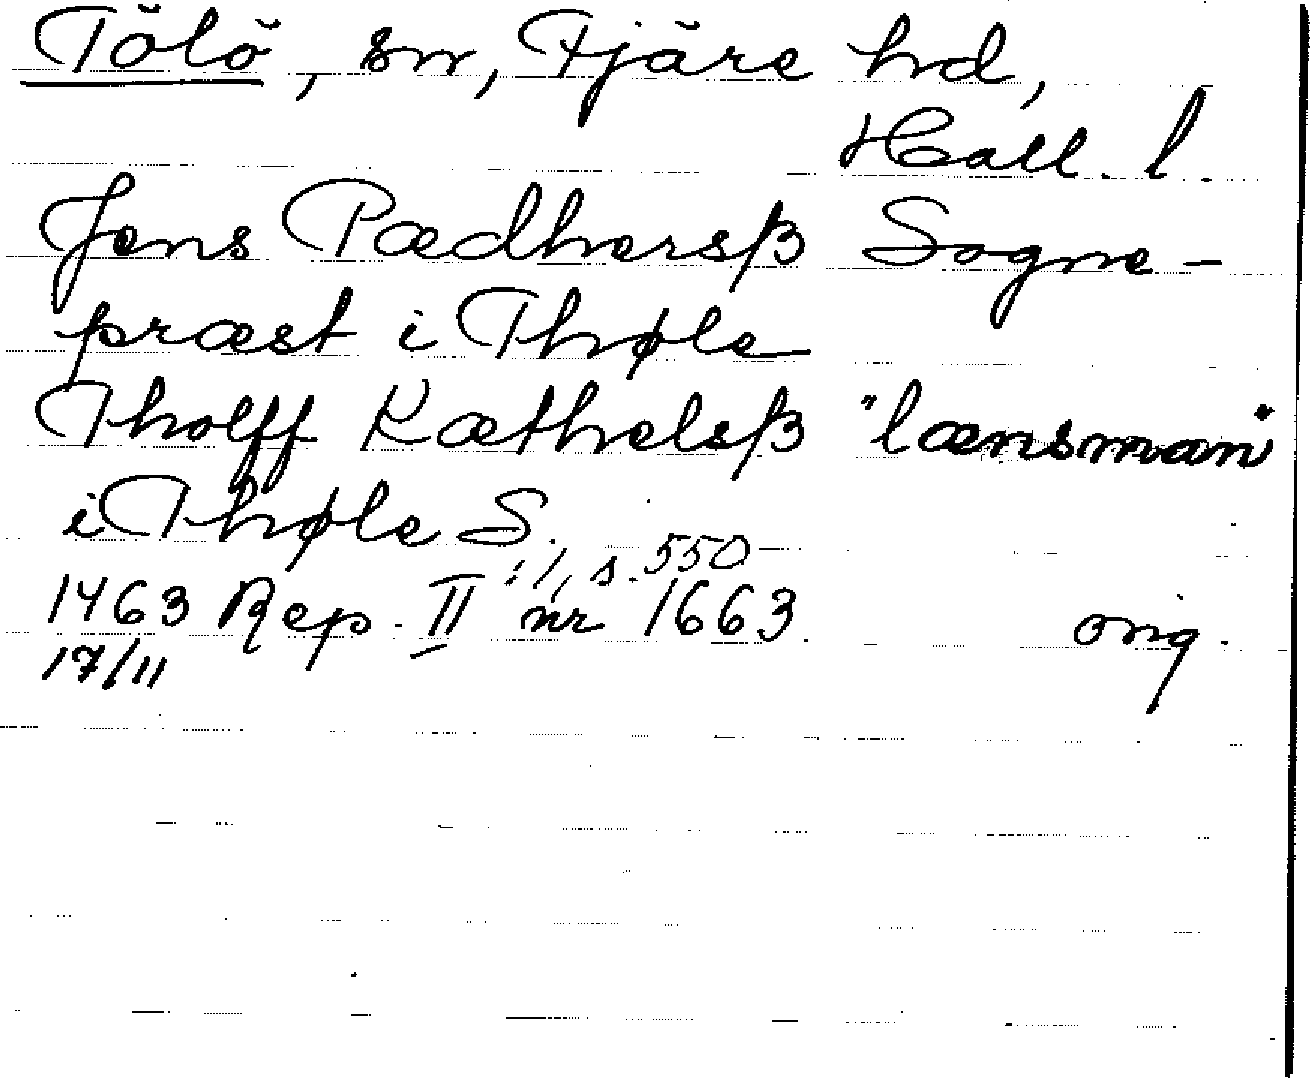 Tölö, sn, Fjäre hd,
Hall. l.
Jens Pædhersß Sogne-
præst i Thøle
Tholff Kæthelsß "lænsman"
i Thøle S.
:1, s. 550
1463 Rep. II nr 1663. orig.
17/11